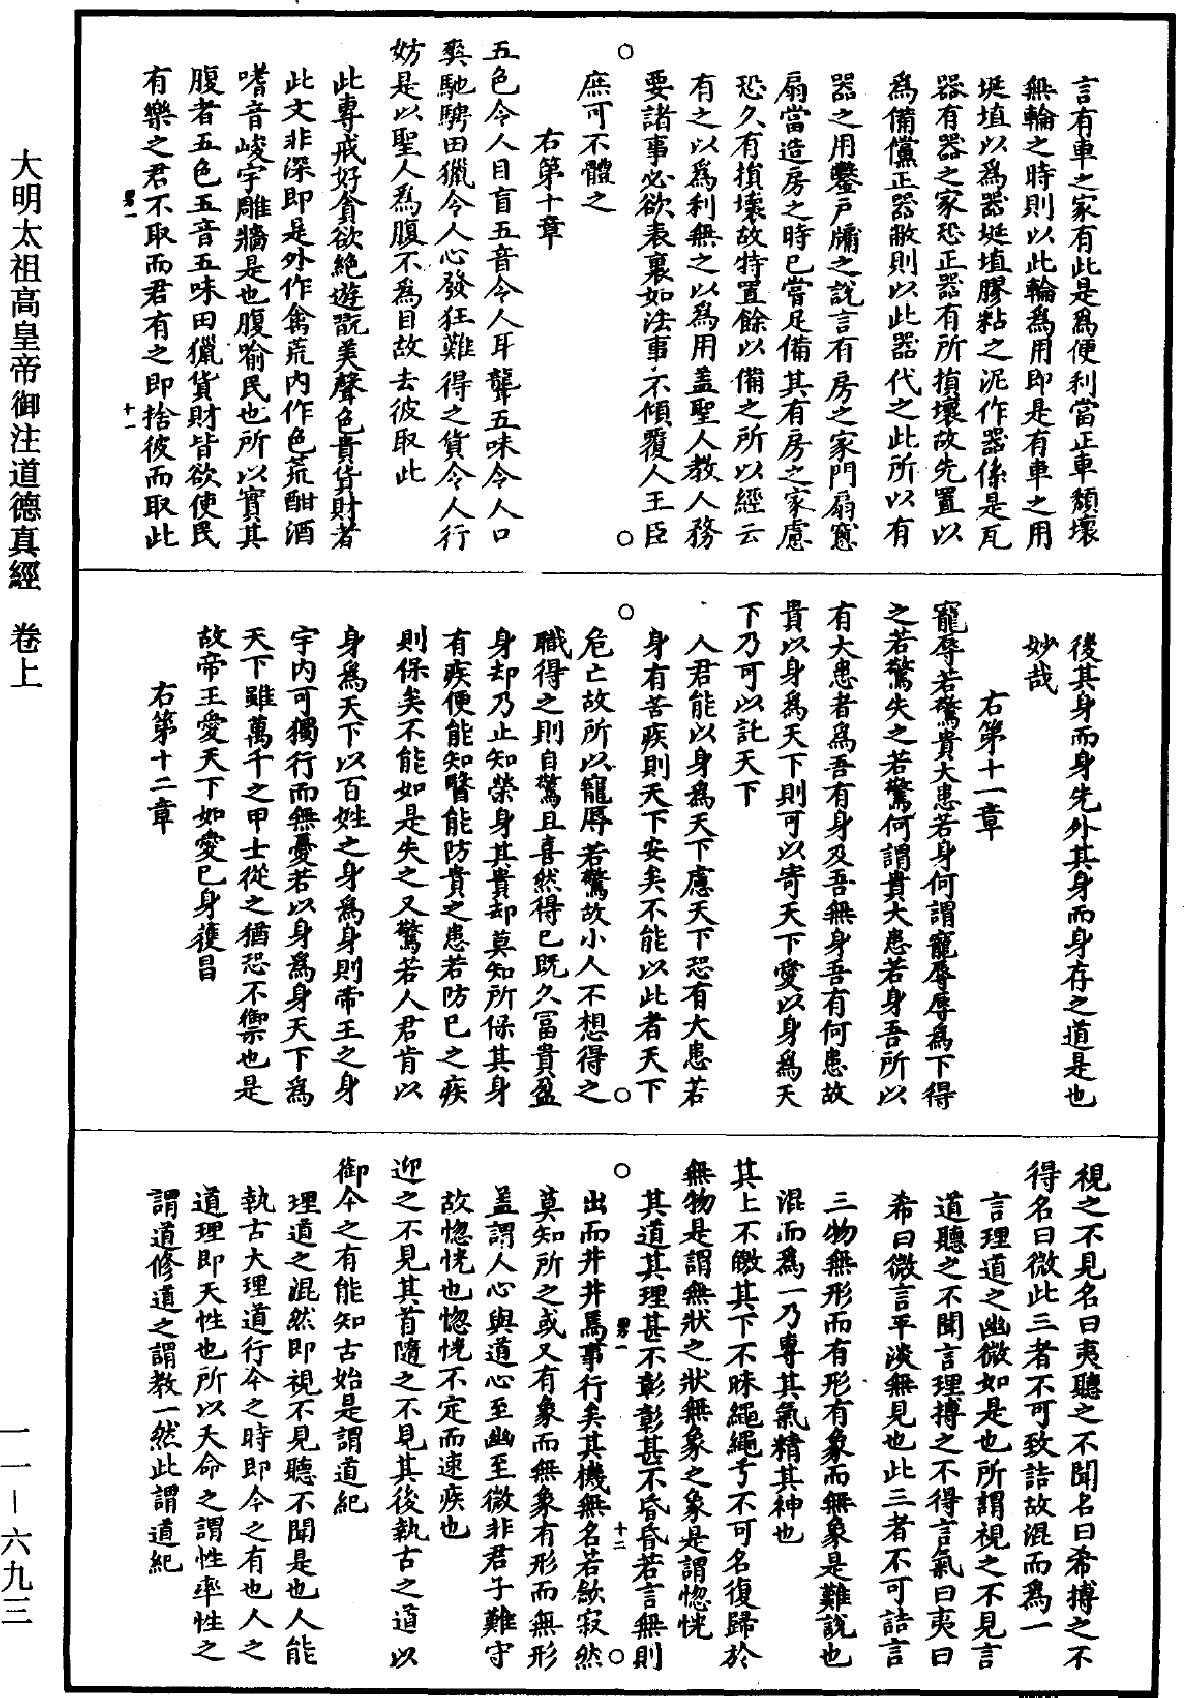 大明太祖高皇帝御注道德真經　卷上
一一—六九三
言有車之家有此是為便利當正車頹壞
無輪之時則以此輪為用即是有車之用
埏埴以為器埏埴膠粘之泥作器係是瓦
器有器之家恐正器有所損壞故先置以
為備儻正器敝則以此器代之此所以有
器之用鑿戶牖之說言有房之家門扇窻
扇當造房之時已嘗足備其有房之家慮
恐久有損壞故特置餘以備之所以經云
有之以為利無之以為用盖聖人教人務
要諸事必欲表裏如法事不傾覆人王臣
庶可不體之
右第十章
五色令人目盲五音令人耳聾五味令人口
爽馳騁田獵令人心發狂難得之貨令人行
妨是以聖人為腹不為目故去彼取此
此專戒好貪欲絕遊翫美聲色貴貨財者
此文非深即是外作禽荒內作色荒酣酒
嗜音峻宇雕牆是也腹喻民也所以實其
腹者五色五音五味田獵貨財皆欲使民
有樂之君不取而君有之即捨彼而取此
十一
後其身而身先外其身而身存之道是也
妙哉
右第十一章
寵辱若驚貴大患若身何謂寵辱辱為下得
之若驚失之若驚何謂貴大患若身吾所以
有大患者為吾有身及吾無身吾有何患故
貴以身為天下則可以寄天下愛以身為天
下乃可以託天下
人君能以身為天下慮天下恐有大患若
身有苦疾則天下安矣不能以此者天下
危亡故所以寵辱若驚故小人不想得之
職得之則自驚且喜然得已既久富貴盈
身却乃止知榮身其貴却莫知所保其身
有疾便能知醫能防貴之患若防已之疾
則保矣不能如是失之又驚若人君肯以
身為天下以百姓之身為身則帝王之身
宇內可獨行而無憂若以身為身天下為
天下雖萬千之甲士從之猶恐不禦也是
故帝王愛天下如愛已身獲昌
右第十二章
視之不見名曰夷聽之不聞名曰希搏之不
得名曰微此三者不可致詰故混而為一
言理道之幽微如是也所謂視之不見言
道聽之不聞言理搏之不得言氣曰夷曰
希曰微言平淡無見也此三者不可詰言
三物無形而有形有象而無象是難說也
混而為一乃專其氣精其神也
其上不皦其下不昧繩繩兮不可名復歸於
無物是謂無狀之狀無象之象是謂惚恍
其道其理甚不彰彰甚不昏昏若言無則
出而井井焉事行矣其機無名若歇寂然
莫知所之或又有象而無象有形而無形
盖謂人心與道心至幽至微非君子難守
故惚恍也惚恍不定而速疾也
迎之不見其首隨之不見其後執古之道以
御今之有能知古始是謂道紀
理道之混然即視不見聽不聞是也人能
執古大理道行今之時即今之有也人之
道理即天性也所以天命之謂性率性之
謂道修道之謂教一然此謂道紀
十二